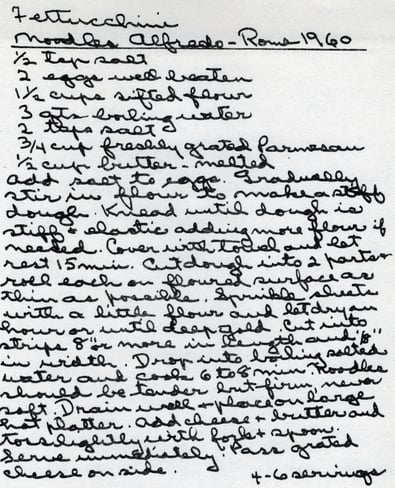 Fettucchini
Noodles Alfredo - Rome 1960
1/2 tsp salt
2 eggs well beaten
1 1/2 cups sifted flour
3 qts boiling water
2 tsps salt
3/4 cup freshly grated Parmesan
1/2 cup butter - melted
Add salt to eggs. Gradually
stir in flour to make a stiff
dough. Knead until dough is
stiff & elastic adding more flour if
needed. Cover with towel and let
rest 15 min. Cut dough into 2 parts &
roll each on floured surface as
thin as possible. Sprinkle sheets
with a little flour and let dry an
hour or until deep gold. Cut into
strips 8" or more in length and 1/8"
in width. Drop into boiling salted
water and cook 6 to 8 min. Noodles
should be tender but firm never
soft. Drain well & place on large
hot platter. Add cheese & butter and
toss lightly with fork & spoon.
Serve immediately. Pass grated
cheese on side. 4-6 servings